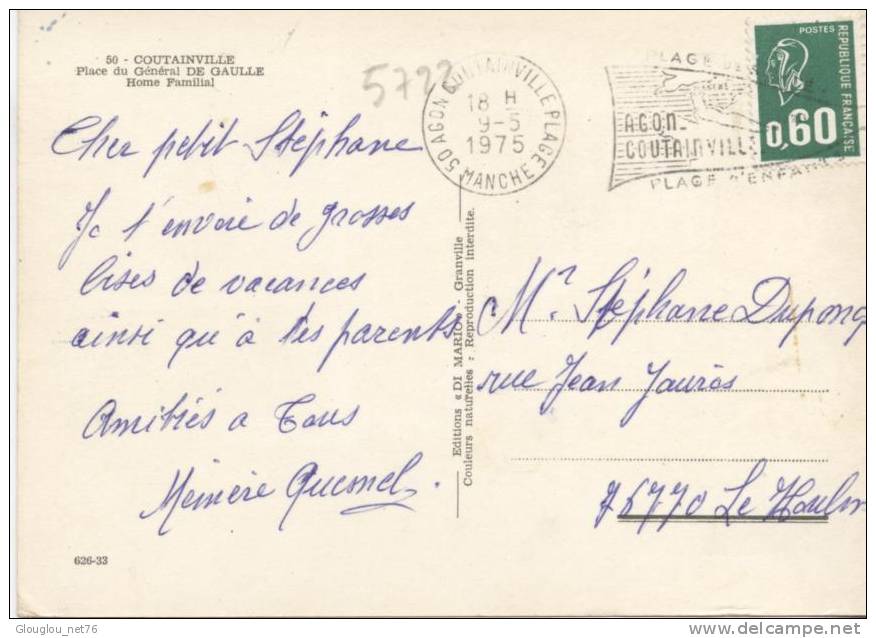 50 - COUTAINVILLE
Place du Général DE GAULLE
Home Familial
5722
50 AGON COUTAINVILLE PLAGE
18 H
9-5
1975
MANCHE
PLAGE DE
AGON-
COUTAINVILLE
PLAGE D'ENFANTS
POSTES
REPUBLIQUE FRANÇAISE
0,60
Cher petit Stéphane
Je t'envoie de grosses
bises de vacances
ainsi qu'à tes parents
Amitiés a Tous
Quesnel
Editions « DI MARIO » - Granville
Couleurs naturelles : Reproduction interdite.
Mr Stéphane Dupong
rue Jean Jaurès
76770 Le Houlm
626-33
Glouglou_net76
delcampe.net